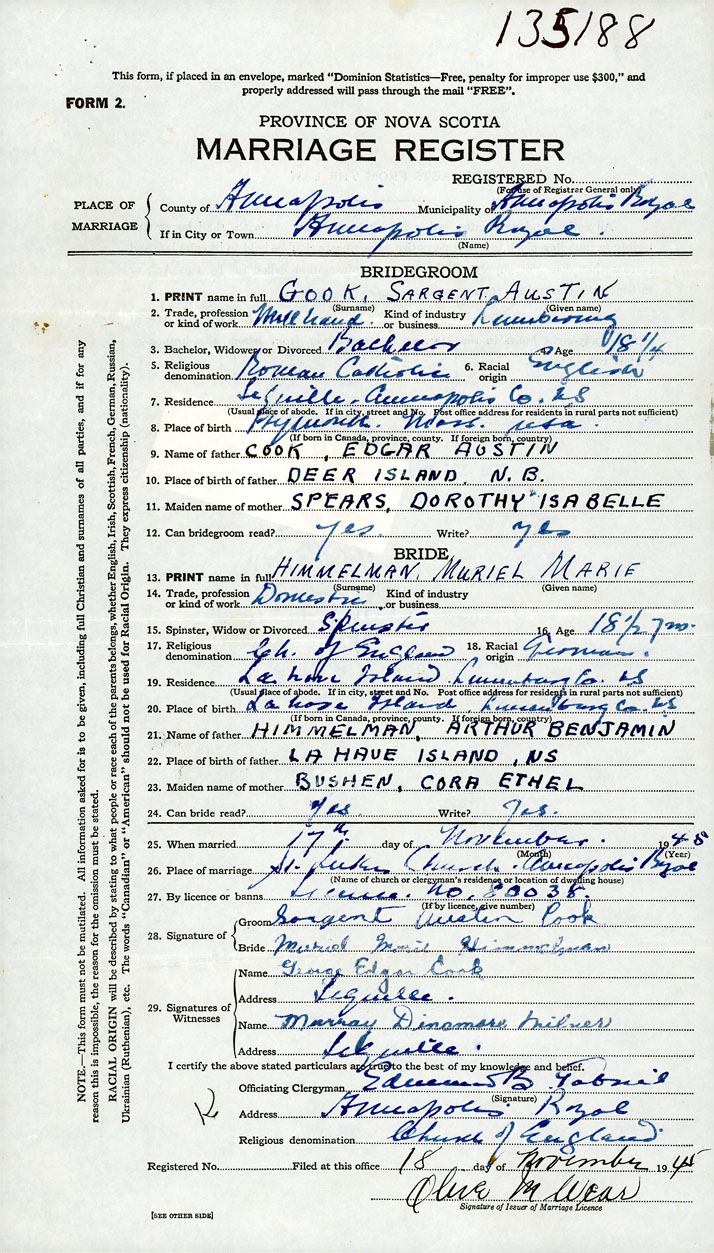 135188
This form, if placed in an envelope, marked "Dominion Statistics—Free, penalty for improper use $300," and
properly addressed will pass through the mail "FREE".
FORM 2.
PROVINCE OF NOVA SCOTIA
MARRIAGE REGISTER
REGISTERED No.
(For use of Registrar General only)
PLACE OF MARRIAGE
County of Annapolis Municipality of Annapolis Royal
If in City or Town Annapolis Royal.
(Name)
BRIDEGROOM
1. PRINT name in full COOK, SARGENT AUSTIN
(Surname) (Given name)
2. Trade, profession or kind of work Millhand. Kind of industry or business Lumbering
3. Bachelor, Widower or Divorced Bachelor 4. Age 18 1/4
5. Religious denomination Roman Catholic 6. Racial origin English
7. Residence Annapolis Co. NS
(Usual place of abode. If in city, street and No. Post office address for residents in rural parts not sufficient)
8. Place of birth Plymouth. Mass. USA.
(If born in Canada, province, county. If foreign born, country)
9. Name of father COOK, EDGAR AUSTIN
10. Place of birth of father DEER ISLAND, N.B.
11. Maiden name of mother SPEARS, DOROTHY ISABELLE
12. Can bridegroom read? yes. Write? yes
BRIDE
13. PRINT name in full HIMMELMAN, MURIEL MARIE
(Surname) (Given name)
14. Trade, profession or kind of work Domestic Kind of industry or business
15. Spinster, Widow or Divorced Spinster 16. Age 18 1/2 yrs.
17. Religious denomination Ch. of England 18. Racial origin German.
19. Residence La Have Island. Lunenburg Co. NS
(Usual place of abode. If in city, street and No. Post office address for residents in rural parts not sufficient)
20. Place of birth La Have Island, Lunenburg Co. NS
(If born in Canada, province, county. If foreign born, country)
21. Name of father HIMMELMAN, ARTHUR BENJAMIN
22. Place of birth of father LA HAVE ISLAND, NS
23. Maiden name of mother BUSHEN, CORA ETHEL
24. Can bride read? Yes Write? Yes.
25. When married 17th day of November. 1945
(Month) (Year)
26. Place of marriage St. Lukes Church. Annapolis Royal
(Name of church or clergyman's residence or location of dwelling house)
27. By licence or banns License. No. 80035.
(If by licence, give number)
28. Signature of
Groom Sargent Austin Cook
Bride Muriel Marie Himmelman
29. Signatures of Witnesses
Name George Edgar Cook
Address
Name Murray Dinsmore Milner
Address
I certify the above stated particulars are true to the best of my knowledge and belief.
Officiating Clergyman B.
(Signature)
Address Annapolis Royal
Religious denomination Church of England
Registered No. Filed at this office 18 day of November 1945
Olive M Wear
Signature of Issuer of Marriage Licence
[SEE OTHER SIDE]
NOTE.—This form must not be mutilated. All information asked for is to be given, including full Christian and surnames of all parties, and if for any
reason this is impossible, the reason for the omission must be stated.
RACIAL ORIGIN will be described by stating to what people or race each of the parents belongs, whether English, Irish, Scottish, French, German, Russian,
Ukrainian (Ruthenian), etc. The words "Canadian" or "American" should not be used for Racial Origin. They express citizenship (nationality).